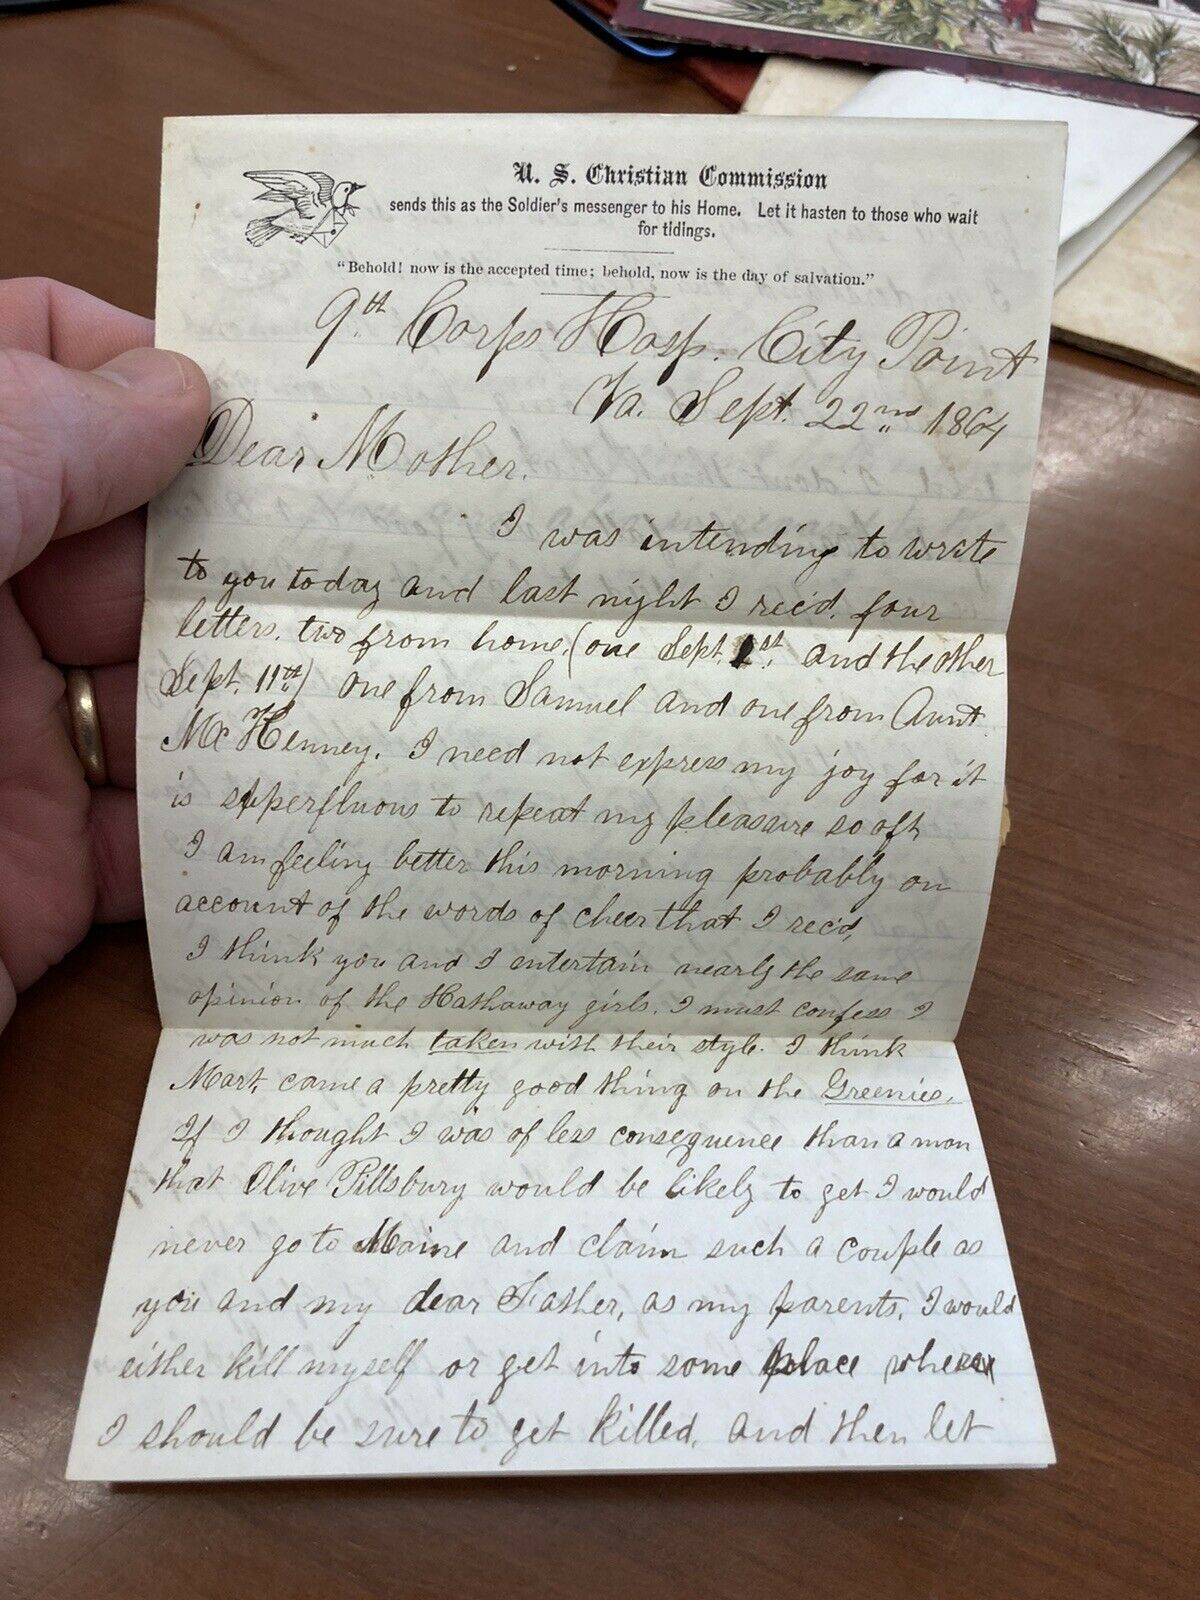 U. S. Christian Commission
sends this as the Soldier's messenger to his Home. Let it hasten to those who wait
for tidings.
"Behold! now is the accepted time; behold, now is the day of salvation."
9th Corps Hosp. City Point
Va. Sept. 22nd 1864
Dear Mother.
I was intending to write
to you today and last night I rec'd. four
letters. two from home. (one Sept. 1st. and the other
Sept. 11th) one from Samuel and one from Aunt
McKenney. I need not express my joy for it
is superfluous to repeat my pleasure so oft,
I am feeling better this morning probably on
account of the words of cheer that I rec'd,
I think you and I entertain nearly the same
opinion of the Hathaway girls. I must confess I
was not much taken with their style. I think
Mart, came a pretty good thing on the Greenies.
If I thought I was of less consequence than a man
that Olive Pillsbury would be likely to get I would
never go to Maine and claim such a couple as
you and my dear Father, as my parents. I would
either kill myself or get into some place where
I should be sure to get killed. and then let